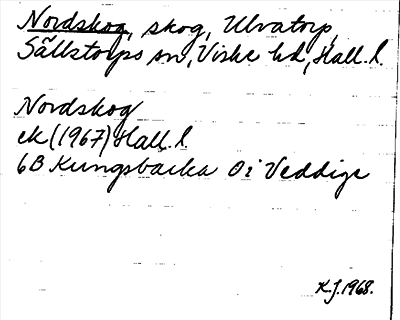 Nordskog, skog, Ulvatorp,
Sällstorps sn, Viske hd, Hall. l.
Nordskog
ek (1967) Hall. l.
6B Kungsbacka Oi Veddige
K.J. 1968.